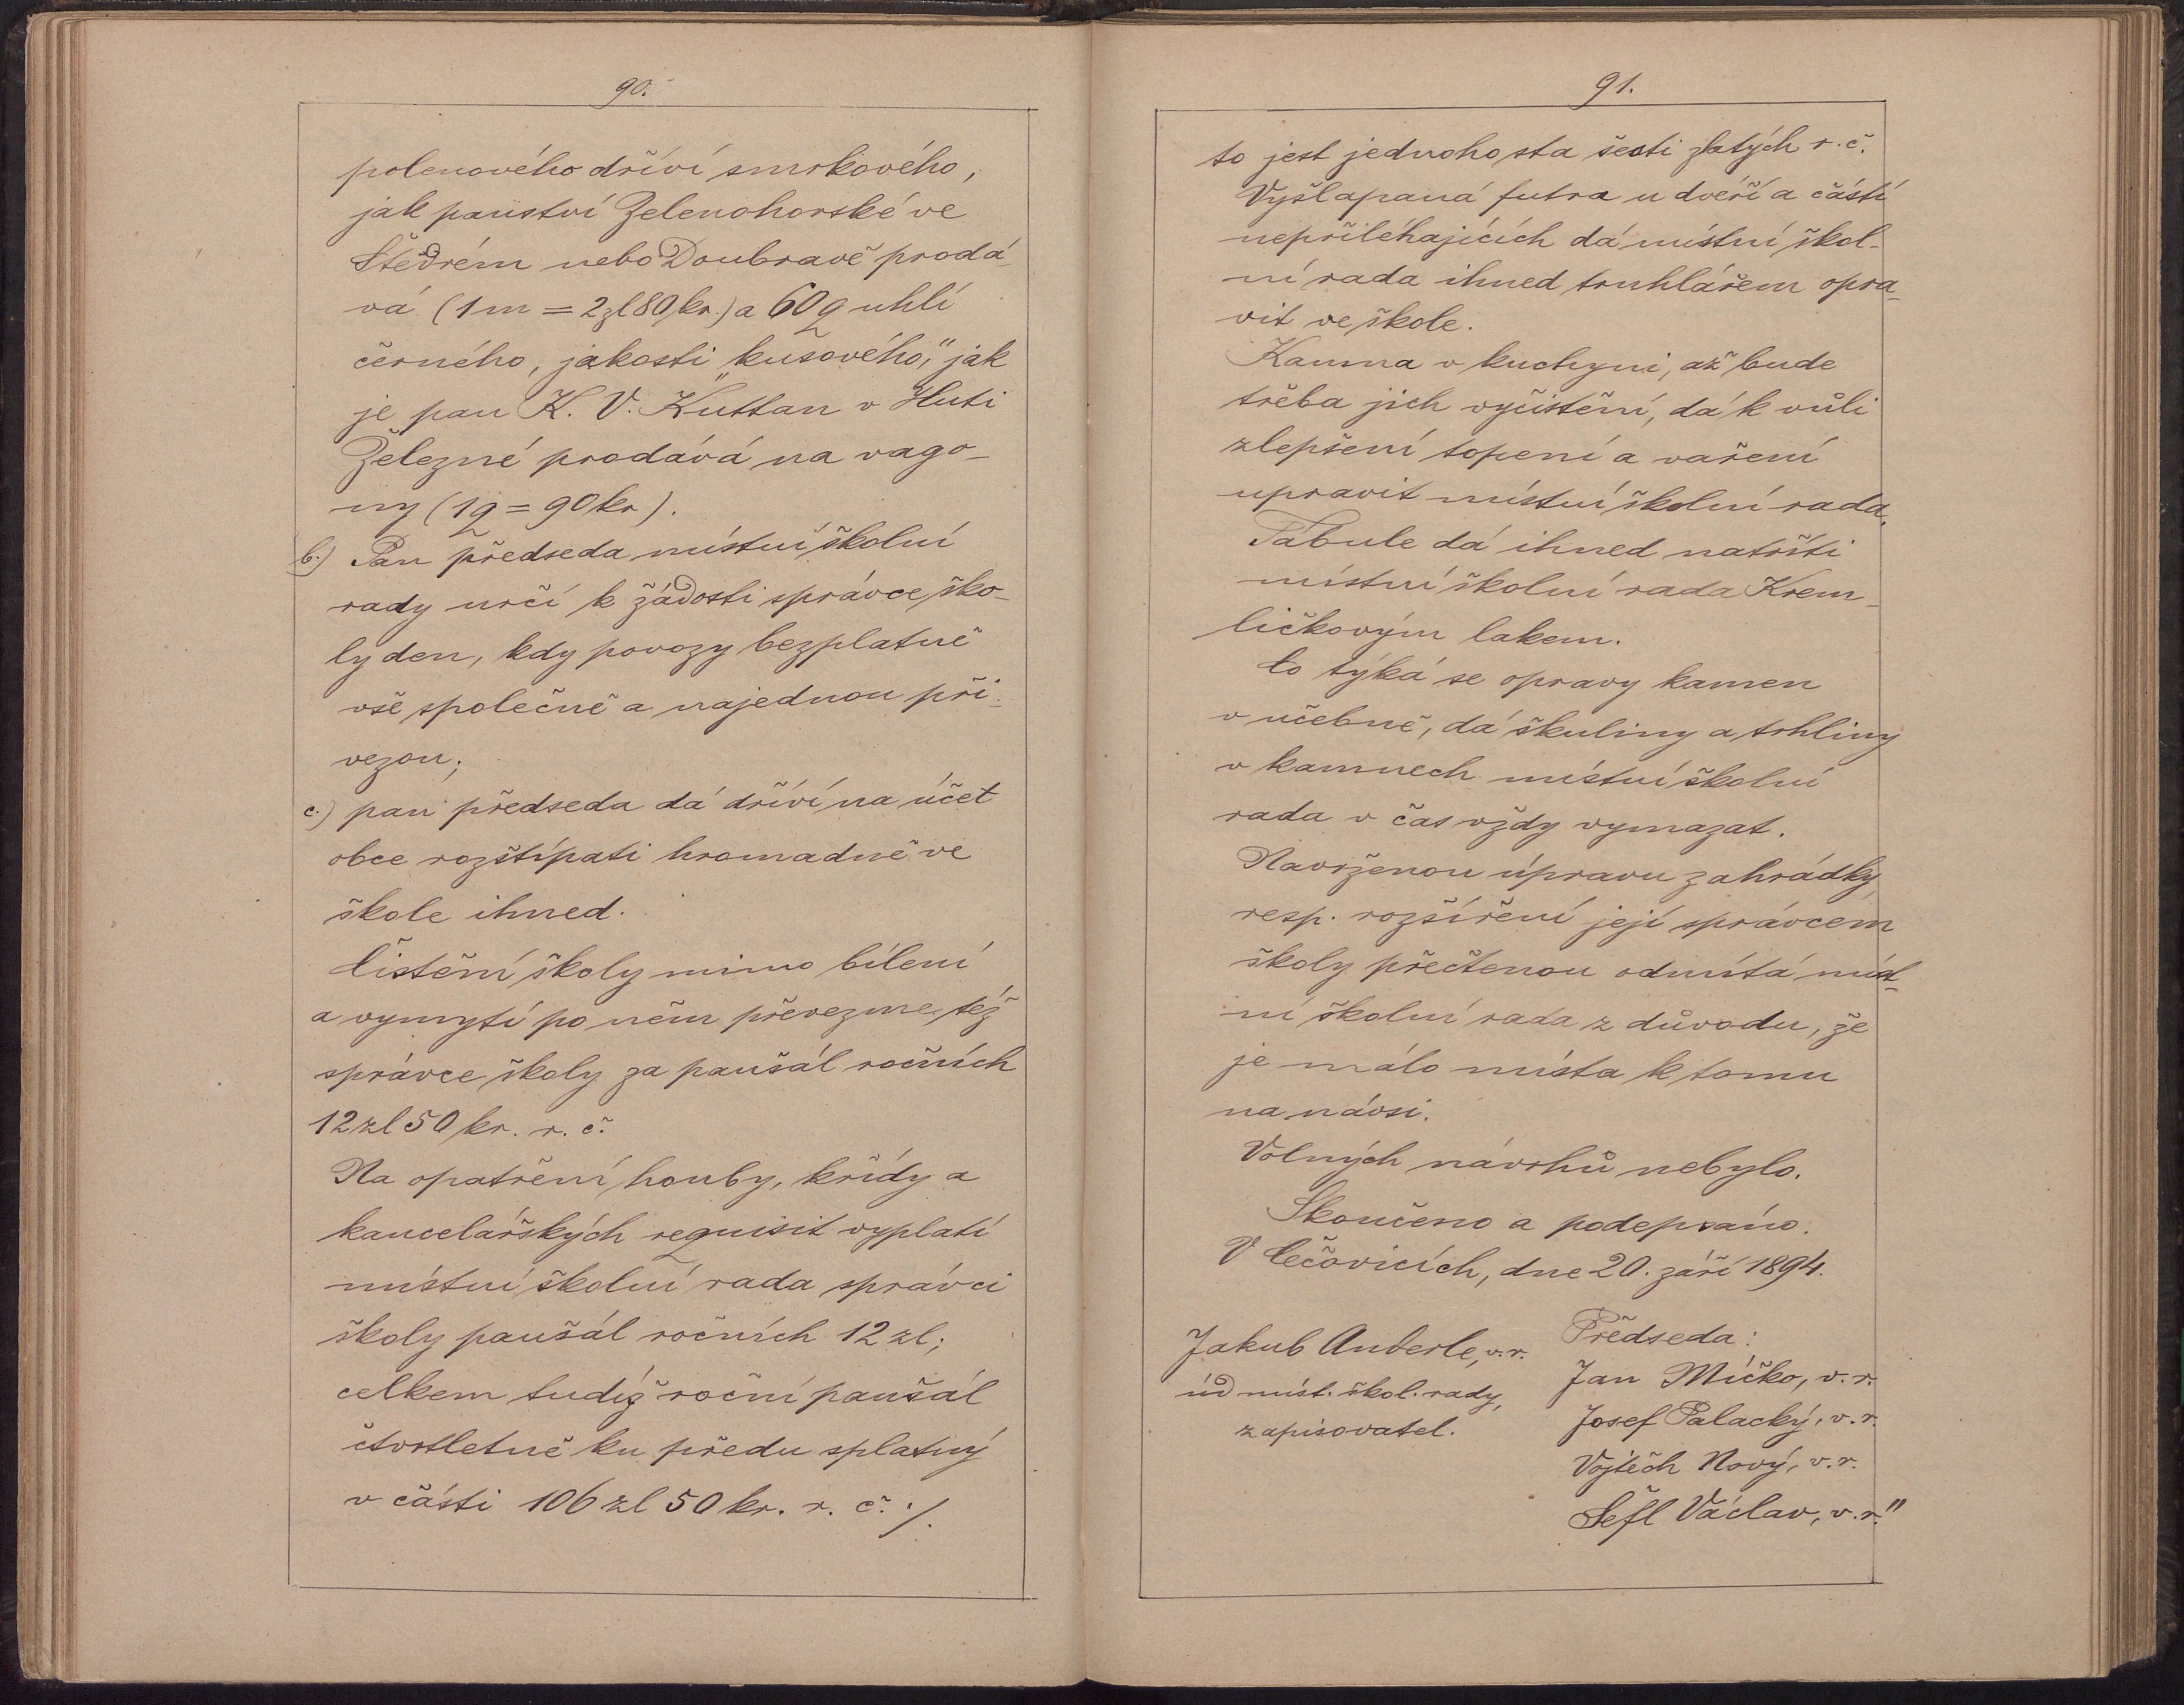 90.
polenového dříví smrkového,
jak panství Zelenohorské ve
Štědrém nebo Doubravě prodá-
vá (1 m = 2 zl 80 kr.) a 60 q uhlí
černého, jakosti „kusového," jak
je pan K. V. Kuttan v Huti
Železné prodává na vago-
ny (1 q = 90 kr).
b.) Pan předseda místní školní
rady určí k žádosti správce ško-
ly den, kdy povozy bezplatně
vše společně a najednou při-
vezou;
c.) pan předseda dá dříví na účet
obce rozštípati hromadně ve
škole ihned.
Čistění školy mimo bílení
a vymytí po něm převezme též
správce školy za paušál ročních
12 zl 50 kr. r. č.
Na opatření houby, křídy a
kancelářských requisit vyplatí
místní školní rada správci
školy paušál ročních 12 zl;
celkem tudíž roční paušál
čtvrtletně ku předu splatný
v části 106 zl 50 kr. r. č. ·/.
91.
to jest jednoho sta šesti zlatých r. č.
Vyšlapaná futra u dveří a částí
nepřiléhajících dá místní škol-
ní rada ihned truhlářem opra-
vit ve škole.
Kamna v kuchyni, až bude
třeba jich vyčistění, dá k vůli
zlepšení topení a vaření
upravit místní školní rada.
Tabule dá ihned natříti
místní školní rada Krem-
ličkovým lakem.
Co týká se opravy kamen
v učebně, dá škuliny a trhliny
v kamnech místní školní
rada v čas vždy vymazat.
Navrženou úpravu zahrádky
resp. rozšíření její správcem
školy přečtenou odmítá míst-
ní školní rada z důvodu, že
je málo místa k tomu
na návsi.
Volných návrhů nebylo.
Skončeno a podepsáno.
V Čečovicích, dne 20. září 1894.
Předseda:
Jakub Anderle, v. r.
úd míst. škol. rady,
zapisovatel.
Jan Míčko, v. r.
Josef Palacký, v. r.
Vojtěch Nový, v. r.
Šefl Václav, v. r."